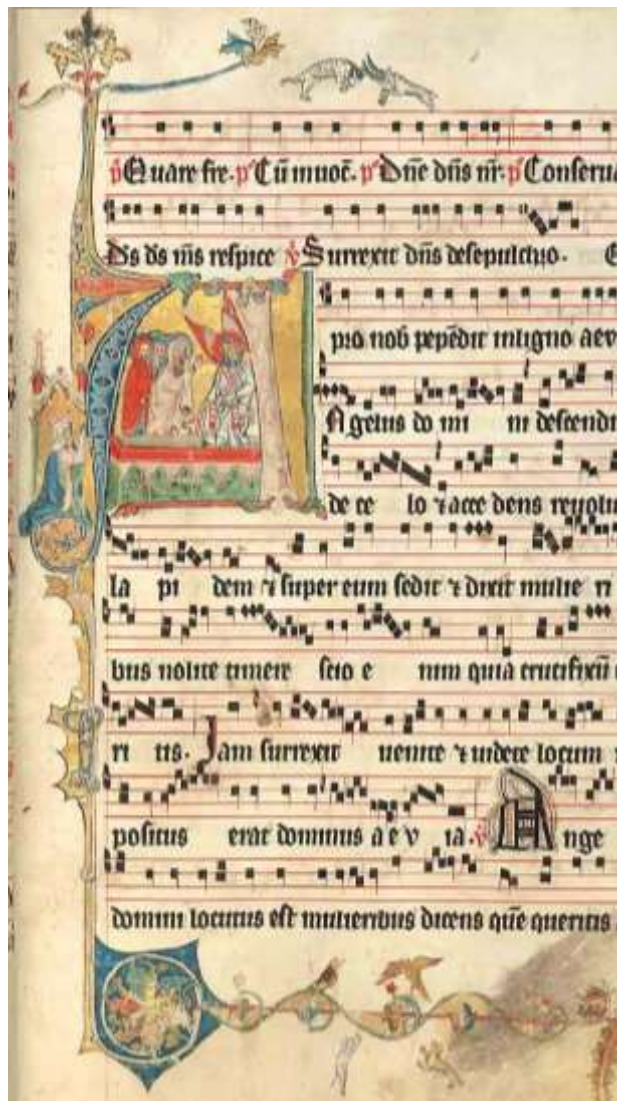 p̄ Quare fre. p̄ Cū inuoc̄. p̄ Dn̄e dn̄s nr̄. p̄ Conserua
Ds ds ms respice ℣ Surrexit dn̄s de sepulchro.
pro nob pepēdit in ligno aev
Angelus do mi ni descendit
de ce lo ⁊ acce dens reuolu
la pi dem ⁊ super eum sedit ⁊ dixit mulie ri
bus nolite timere scio e nim quia crucifixū
ri tis. Jam surrexit uenite ⁊ uidete locum
positus erat dominus a e v ia. ℣ Ange
domini locutus est mulieribus dicens quē queritis